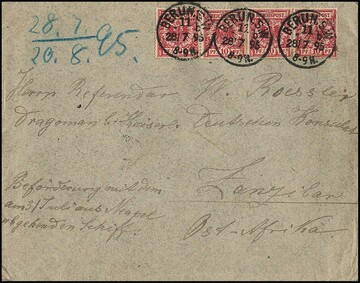 28. 7.
20. 8. 95.
BERLIN S.W.
11
28.7.95
8-9N.
BERLIN S.W.
11
28.7.95
8-9N.
BERLIN S.W.
11
28.7.95
8-9N.
Herrn Referendar W. Roessler
Dragoman b. Kaiserl. Deutschen Konsulat
Zanzibar
Ost-Afrika.
Beförderung mit dem
am 31 Juli aus Neapel
abgehenden Schiff.